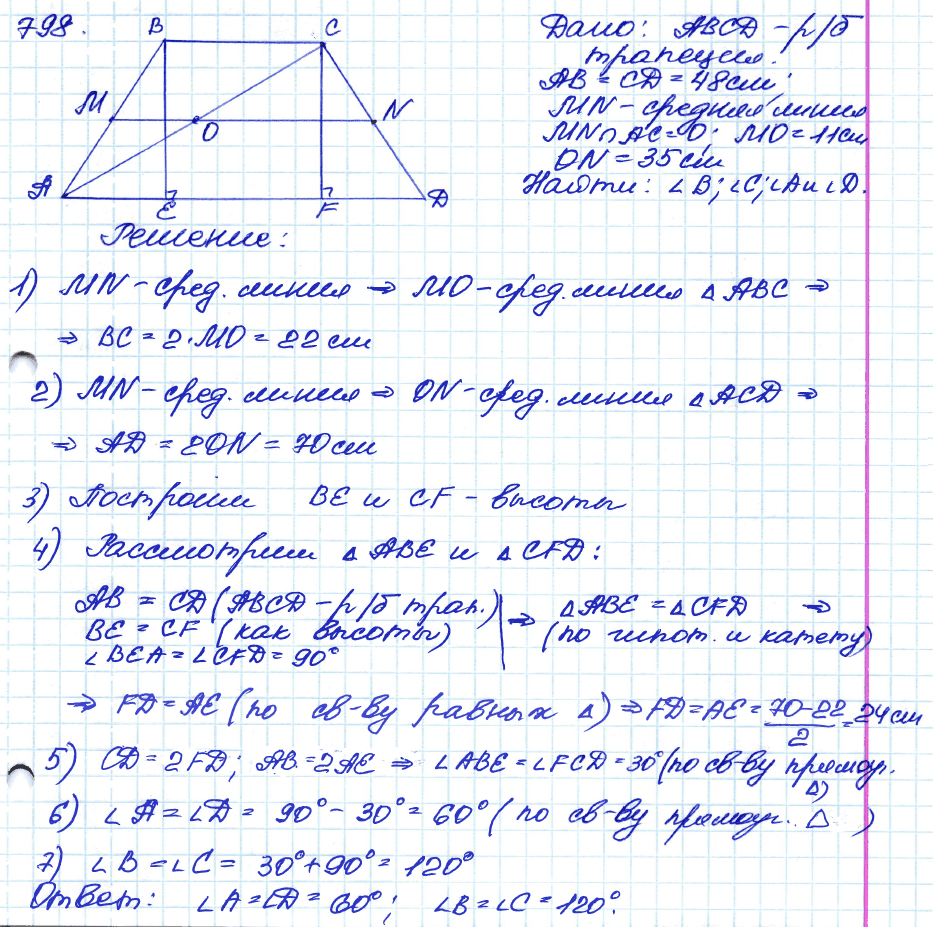 798.
B C
M O N
A E F D
Дано: ABCD - р/б
трапеция.
AB = CD = 48 см;
MN - средняя линия
MN ∩ AC = O; MO = 11 см
ON = 35 см
Найти: ∠B; ∠C; ∠A и ∠D.
Решение:
1) MN - сред. линия ⇒ MO - сред. линия △ABC ⇒
⇒ BC = 2·MO = 22 см
2) MN - сред. линия ⇒ ON - сред. линия △ACD ⇒
⇒ AD = 2ON = 70 см
3) Построим BE и CF - высоты
4) Рассмотрим △ABE и △CFD:
AB = CD (ABCD - р/б трап.)
BE = CF (как высоты)
∠BEA = ∠CFD = 90°
⇒ △ABE = △CFD ⇒
(по гипот. и катету)
⇒ FD = AE (по св-ву равных △) ⇒ FD = AE = (70-22)/2 = 24 см
5) CD = 2FD; AB = 2AE ⇒ ∠ABE = ∠FCD = 30° (по св-ву прямоуг. △)
6) ∠A = ∠D = 90° - 30° = 60° (по св-ву прямоуг. △)
7) ∠B = ∠C = 30° + 90° = 120°
Ответ: ∠A = ∠D = 60°; ∠B = ∠C = 120°.